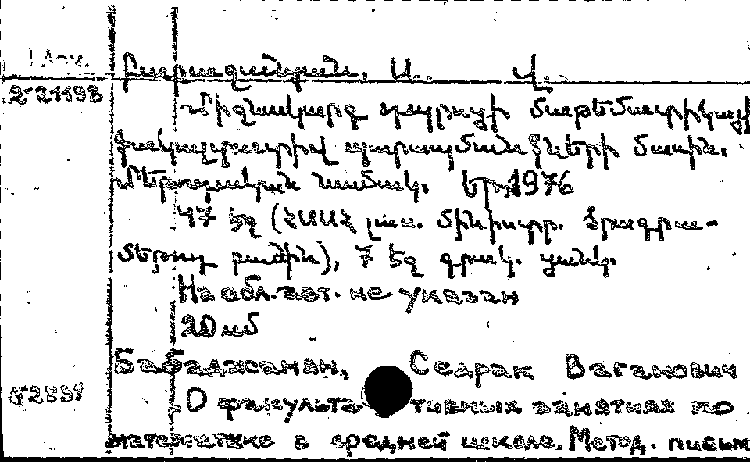 Բաբաջանյան, Ս. Վ.
2-21198
Միջնակարգ դպրոցի մաթեմատիկայի
ֆակուլտատիվ պարապմունքների մասին.
Մեթոդական նամակ. Եր., 1976
47 էջ (ՀՍՍՀ լուս. մինիստր. ծրագրա-
մեթոդ բաժին), 7 էջ գրակ. ցանկ.
На обл. авт. не указан
20 мб
Бабаджанян, Седрак Ваганович
О факультативных занятиях по
математике в средней школе. Метод. письм